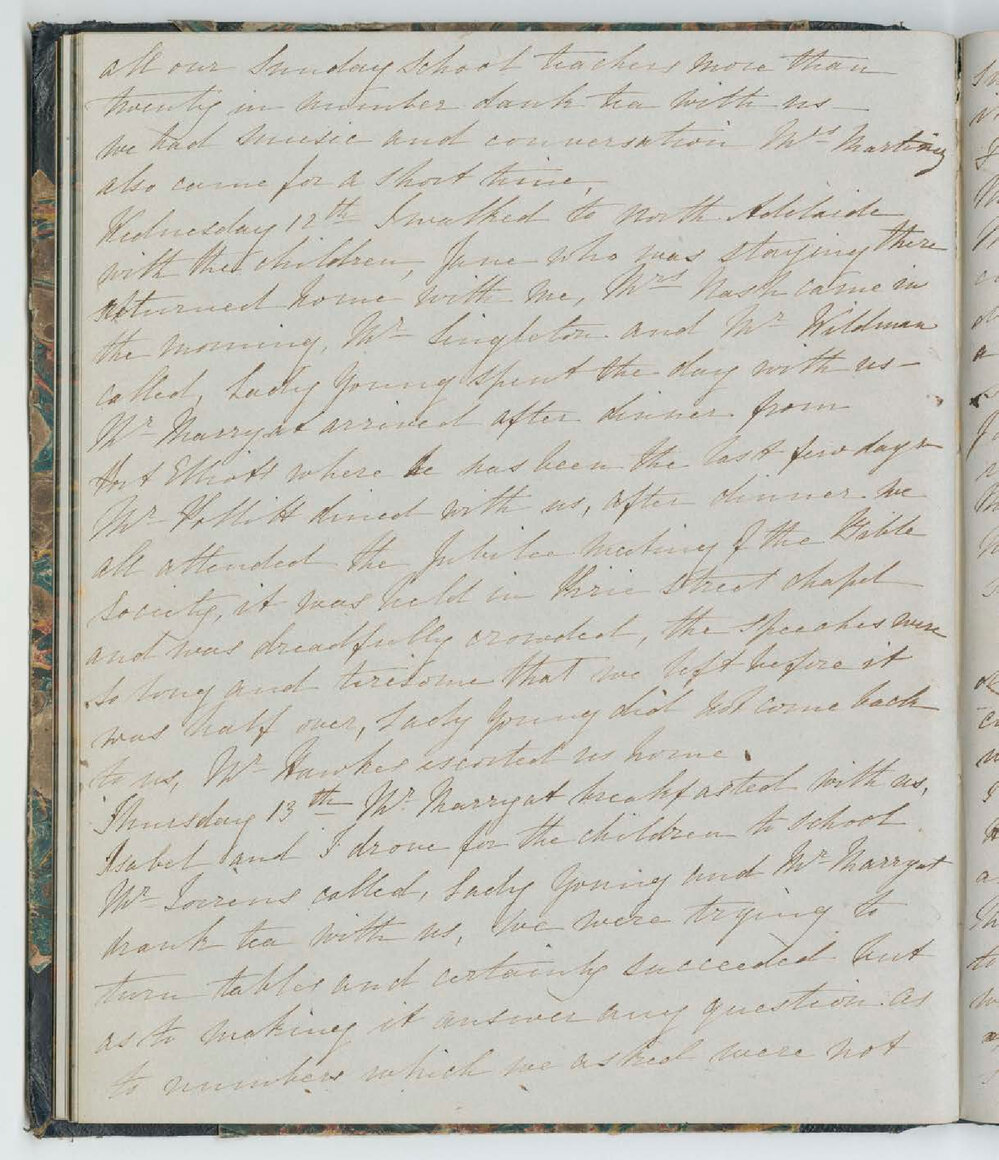 all our Sunday School teachers more than
twenty in number dank tea with us
we had music and conversation Mrs
also came for a short time,
Wednesday 12th I walked to North Adelaide
with the children, Jane who was staying there
returned home with me, Mrs Nash came in
the morning, Mr Singleton and Mr Wildman
called, Lady Young spent the day with us -
Mr Marryat arrived after dinner from
Port Elliott where he has been the last few days
Mr dined with us, after dinner we
all attended the Jubilee meeting of the Bible
Society, it was held in Pirie Street chapel
and was dreadfully crowded, the speeches were
so long and tiresome that we left before it
was half over, Lady Young did not come back
to us, Mr Hawkes escorted us home.
Thursday 13th Mr Marryat breakfasted with us,
Isabel and I drove for the children to school
Mr called, Lady Young and Mr Marryat
drank tea with us, we were trying to
turn tables and certainly succeeded but
as to making it answer any question as
to numbers which we asked were not